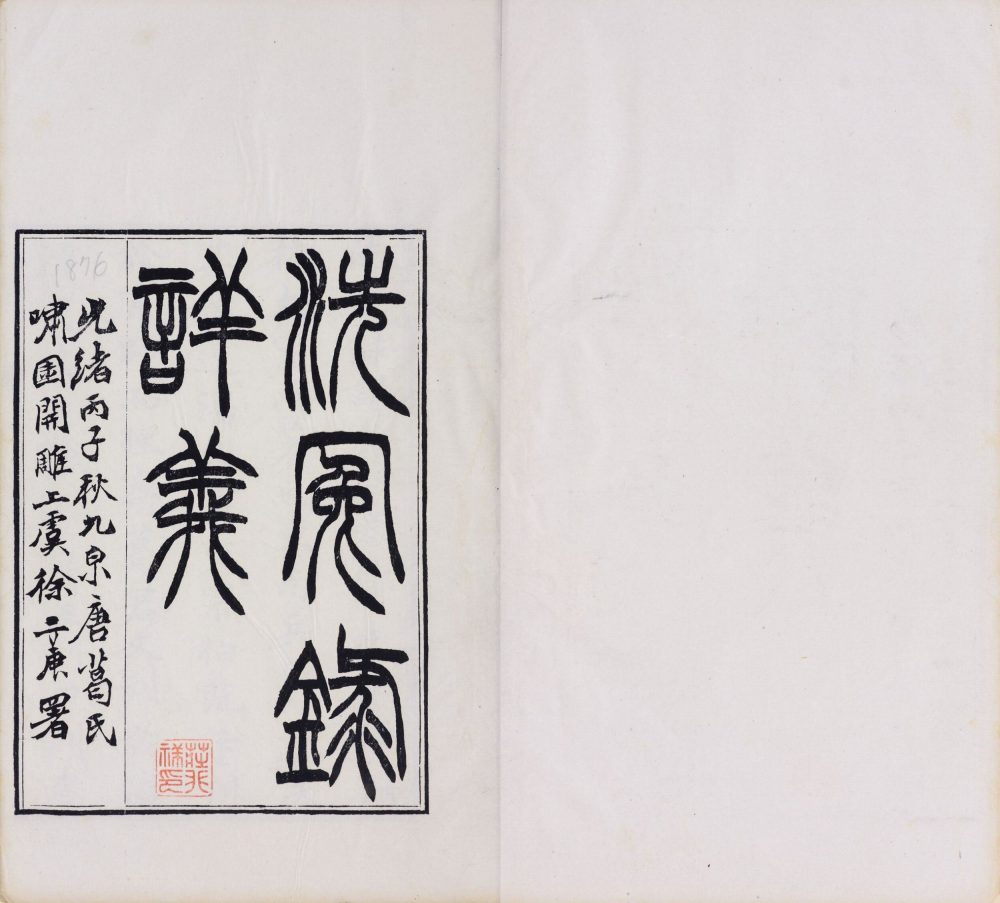 洗冤錄
詳義
光緒丙子秋九泉唐葛氏
嘯園開雕上虞徐三庚署
1876